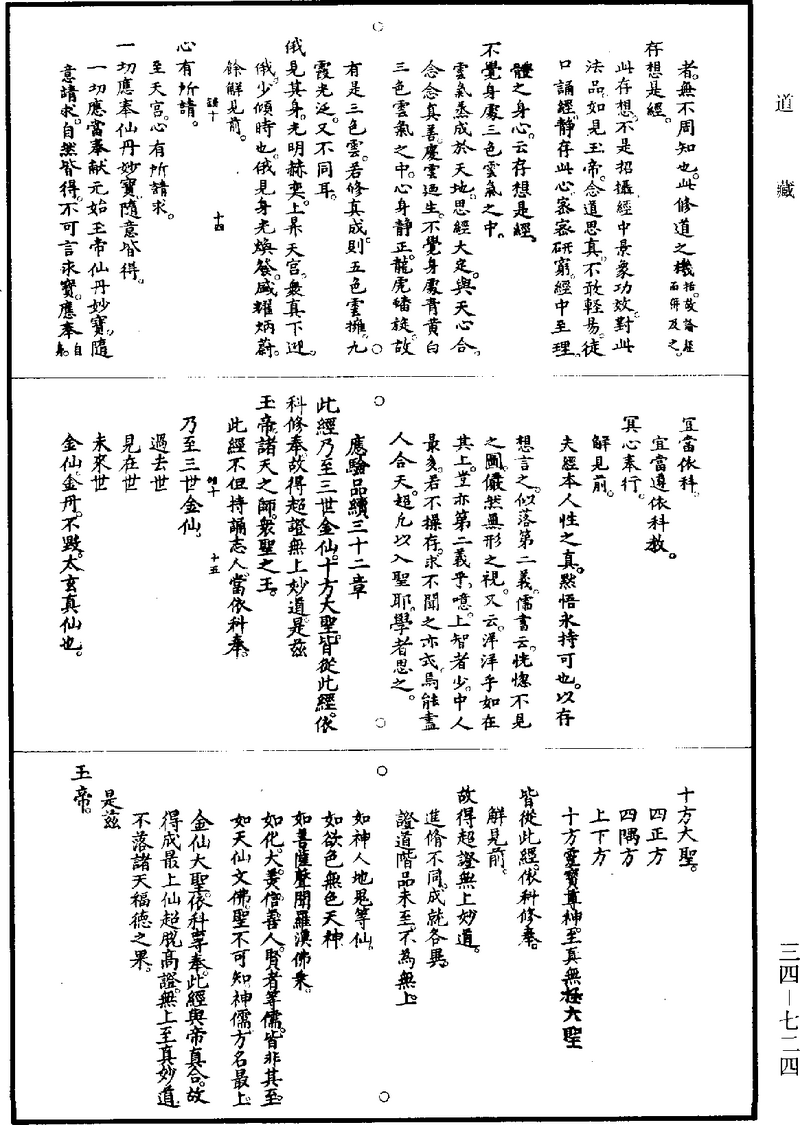 道藏
者。無不周知也。此修道之機括。故論經而併及之。
存想是經。
此存想。不是招攝經中景象功效。對此
法品。如見玉帝。念道思真。不敢輕易。徒
口誦經。靜存此心。密密研窮。經中至理。
體之身心。云存想是經。
不覺身處三色雲氣之中。
雲氣蒸成於天地。思經大定。與天心合。
念念真善。慶雲迺生。不覺身處青黃白
三色雲氣之中。心身靜正。龍虎蟠旋。故
有是三色雲。若修真成。則五色雲擁。九
霞光泛。又不同耳。
俄見其身。光明赫奕。上昇天宮。衆真下迎。
俄。少傾時也。俄見身光煥發。威耀炳蔚。
餘解見前。
十四
心有所請。
至天宮。心有所請求。
一切應奉仙丹妙寶。隨意皆得。
一切應當奉献元始玉帝仙丹妙寶。隨
意請求。自然皆得。不可言求寶。應奉自
宜當依科。
宜當遵依科教。
冥心奉行。
解見前。
夫經本人性之真。黙悟永持可也。以存
想言之。似落第二義。儒書云。恍惚不見
之圖。儼然無形之視。又云。洋洋乎如在
其上。豈亦第二義乎。噫。上智者少。中人
最多。若不操存。求不聞之亦式。烏能盡
人合天。超凡以入聖耶。學者思之。
應驗品續三十二章
此經乃至三世金仙。十方大聖。皆從此經。依
科修奉。故得超證無上妙道。是茲
玉帝。諸天之師。衆聖之王。
此經不但持誦志人。當依科奉。
十五
乃至三世金仙。
過去世
見在世
未來世
金仙金丹。不毀。太玄真仙也。
十方大聖。
四正方
四隅方
上下方
十方靈寶尊神。至真無極大聖
皆從此經。依科修奉。
解見前。
故得超證無上妙道。
進脩不同。成就各異。
證道階品未至。不為無上。
如神人地鬼等仙。
如欲色無色天神
如菩薩聲聞羅漢佛乘。
如化。大。美。信。善人。賢者等儒。皆非其至。
如天仙文佛。聖不可知。神儒方名最上。
金仙大聖。依科尊奉。此經與帝真合。故
得成最上仙超脫高證。無上至真妙道。
不落諸天福德之果。
是茲
玉帝。
三四—七二四